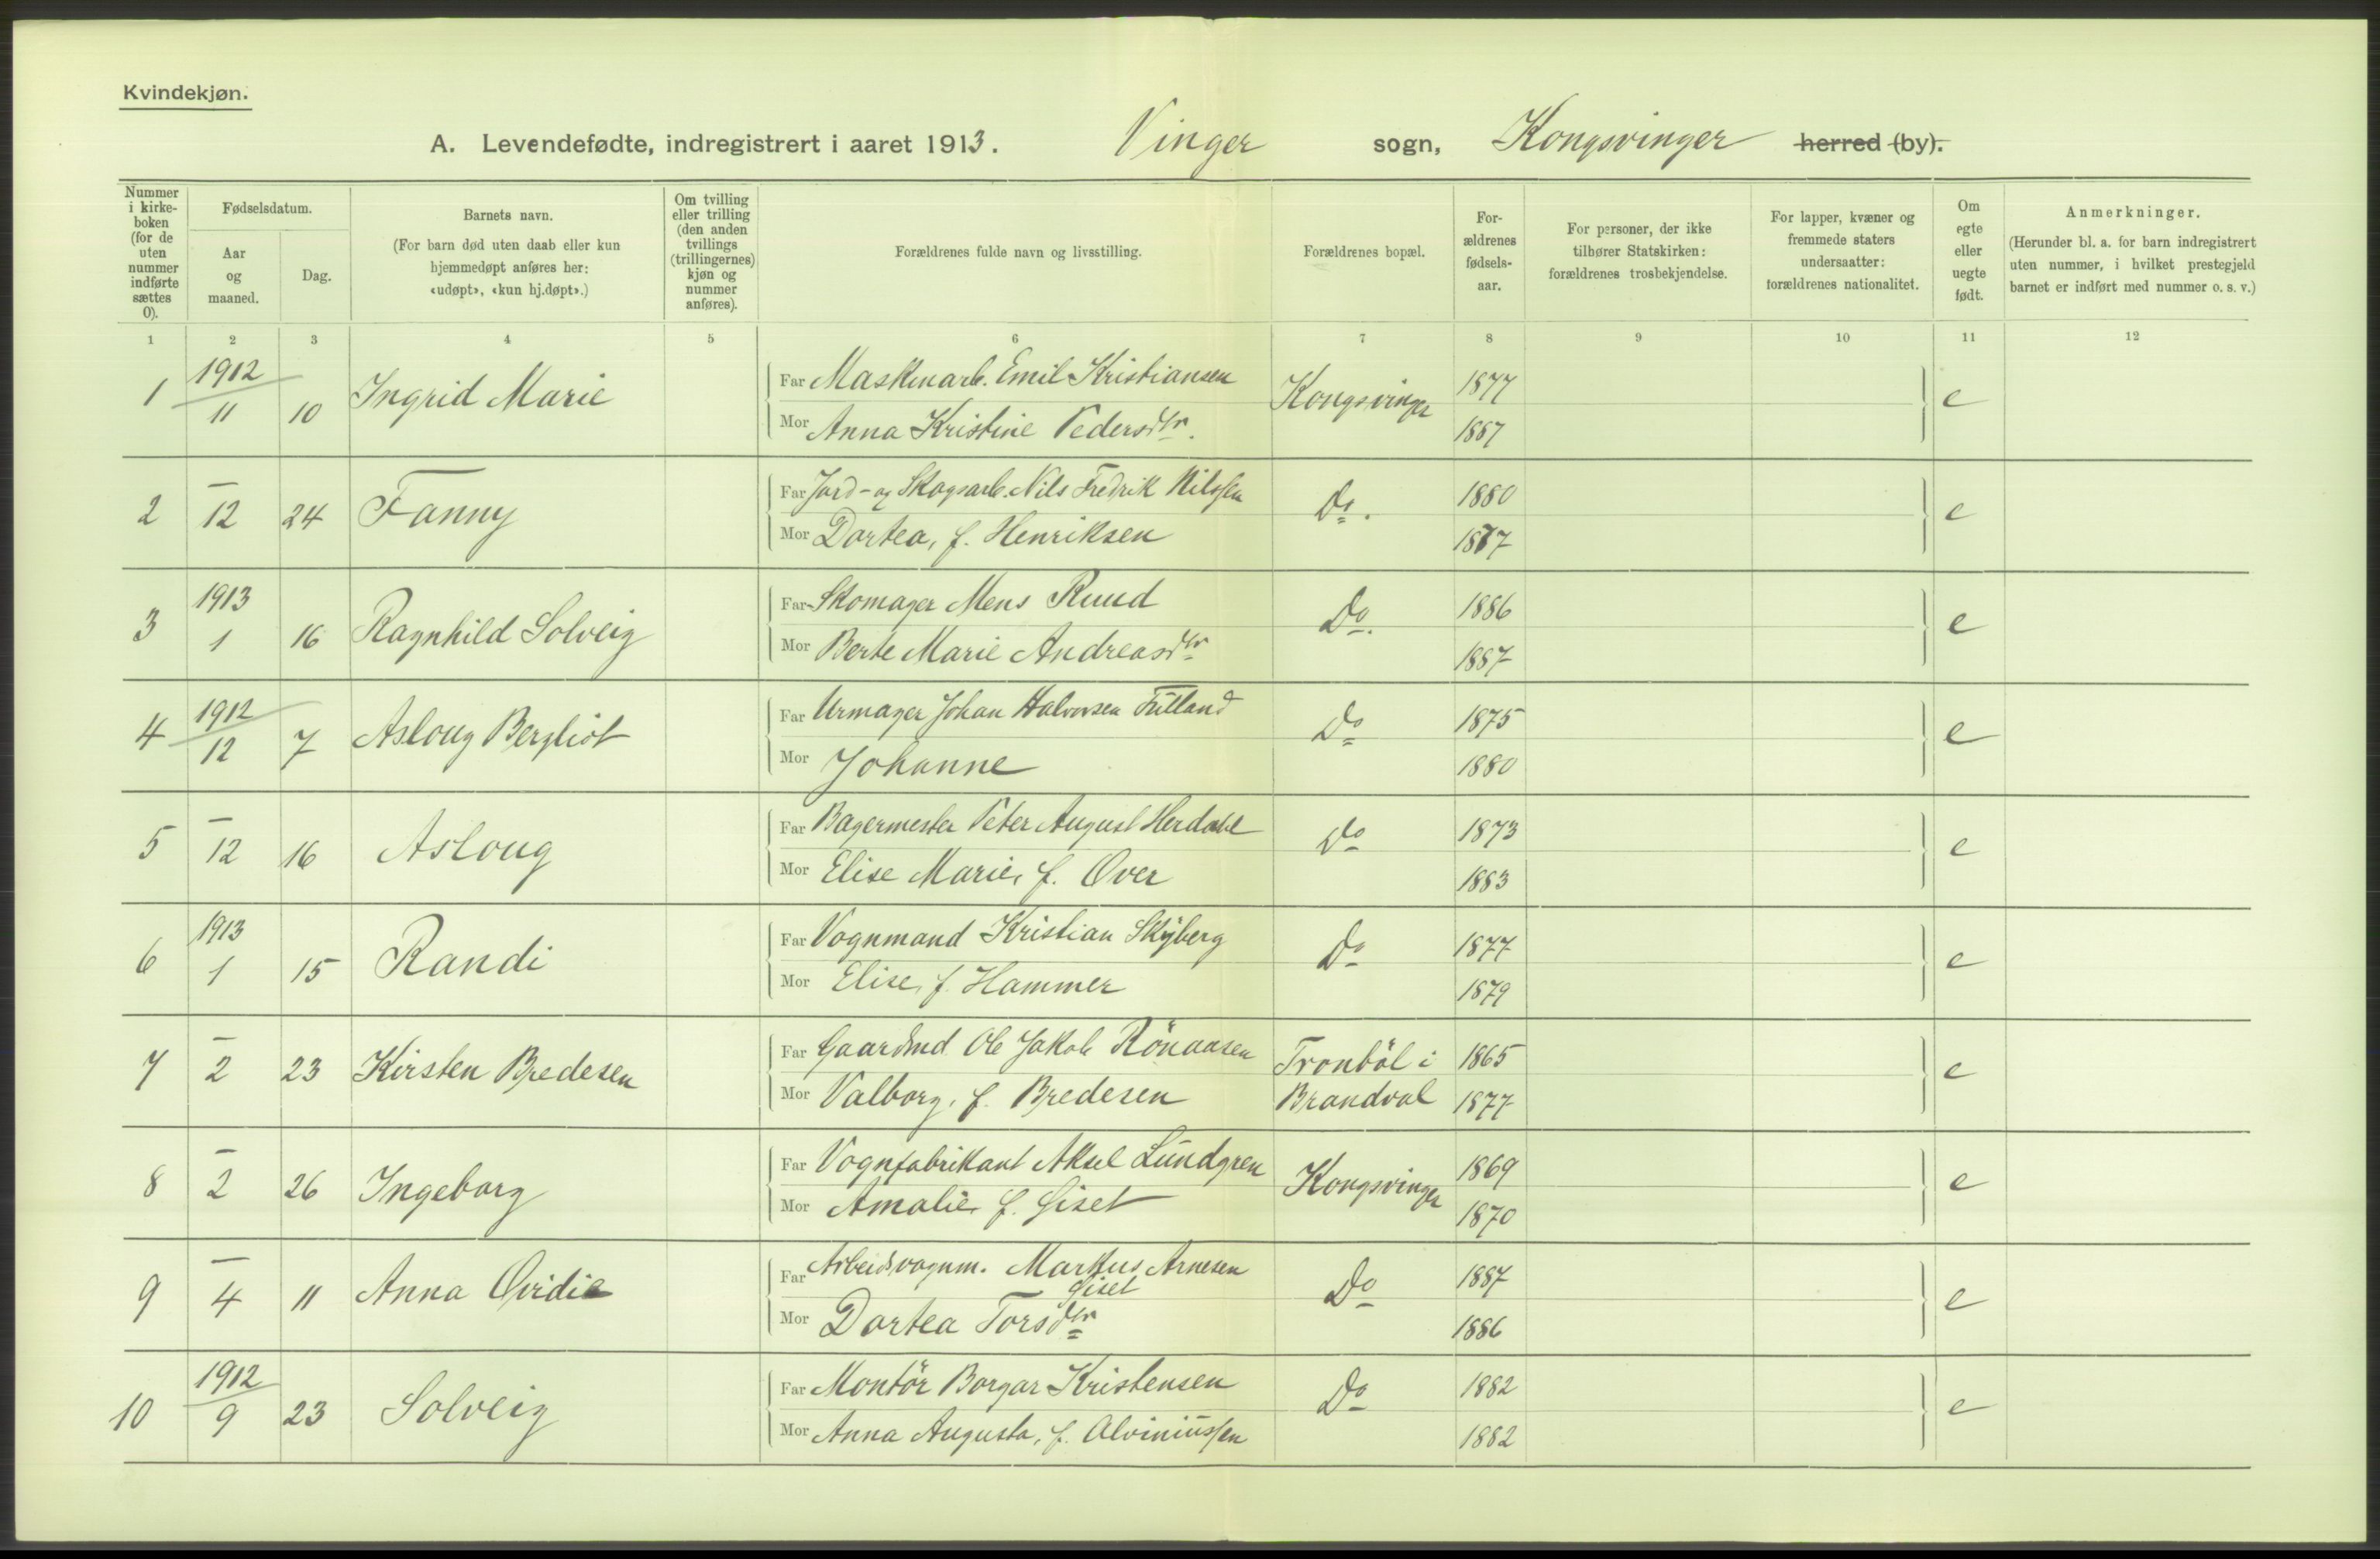 Kvindekjøn.
A. Levendefødte, indregistrert i aaret 1913. Vinger sogn, Kongsvinger herred (by).
Nummer i kirkeboken (for de uten nummer indførte sættes 0).
Fødselsdatum.
Aar og maaned.
Dag.
Barnets navn.
(For barn død uten daab eller kun hjemmedøpt anføres her: «udøpt», «kun hj.døpt».)
Om tvilling eller trilling (den anden tvillings (trillingernes) kjøn og nummer anføres).
Forældrenes fulde navn og livsstilling.
Forældrenes bopæl.
Forældrenes fødselsaar.
For personer, der ikke tilhører Statskirken: forældrenes trosbekjendelse.
For lapper, kvæner og fremmede staters undersaatter: forældrenes nationalitet.
Om egte eller uegte født.
Anmerkninger.
(Herunder bl. a. for barn indregistrert uten nummer, i hvilket prestegjeld barnet er indført med nummer o. s. v.)
1 2 3 4 5 6 7 8 9 10 11 12
1 1912 11 10 Ingrid Marie Far Maskinarb. Emil Kristiansen Kongsvinger 1877 e
Mor Anna Kristine Pedersdtr. 1887
2 — 12 24 Fanny Far Jord- og Skogsarb. Nils Fredrik Nilssen Do. 1880 e
Mor Dortea, f. Henriksen 1877
3 1913 1 16 Ragnhild Solveig Far Skomager Mens Ruud Do. 1886 e
Mor Berte Marie Andreasdtr 1887
4 1912 12 7 Asloug Bergliot Far Urmager Johan Halvorsen Do 1875 e
Mor Johanne 1880
5 — 12 16 Asloug Far Bagermester Peter August Herdahl Do 1873 e
Mor Elise Marie, f. Over 1883
6 1913 1 15 Randi Far Vognmand Kristian Skyberg Do 1877 e
Mor Elise, f. Hammer 1879
7 — 2 23 Kirsten Bredesen Far Gaardmd. Ole Jakob Rönaasen Tronböl i 1865 e
Mor Valborg, f. Bredesen Brandval 1877
8 — 2 26 Ingeborg Far Vognfabrikant Aksel Lundgren Kongsvinger 1869 e
Mor Amalie, f. Giset 1870
9 — 4 11 Anna Ovidie Far Arbeidsvognm. Markus Arnesen Do 1887 e
Giset
Mor Dortea Torsdtr 1886
10 1912 9 23 Solveig Far Montör Borgar Kristensen Do 1882 e
Mor Anna Augusta, f. Alviniussen 1882